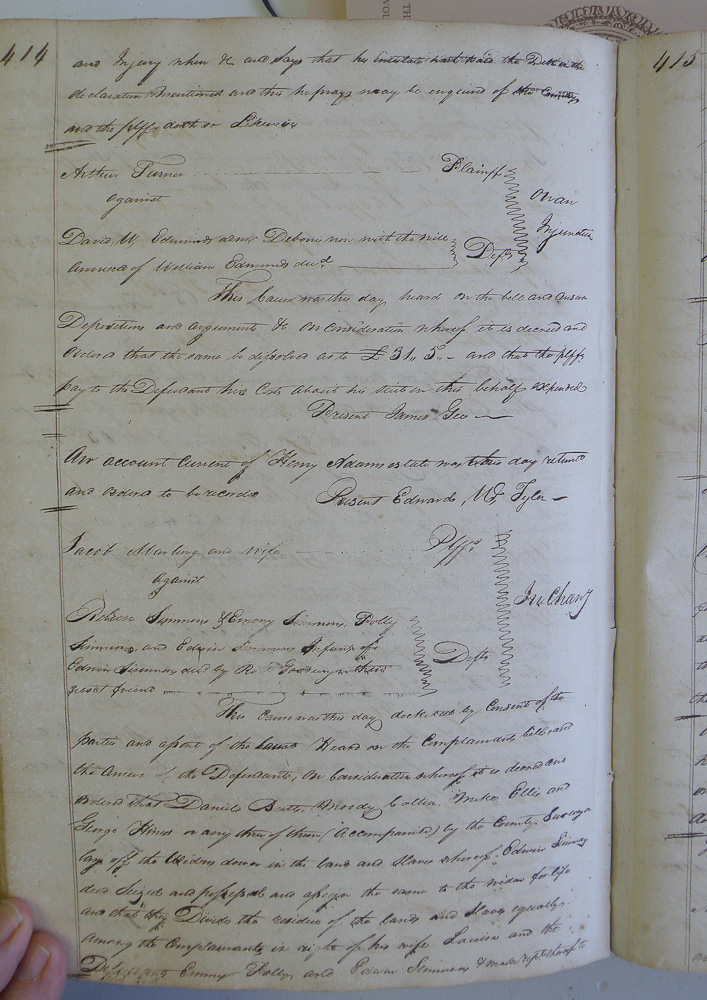 414
and Injury when &c and says that his intestate hath paid the Debt in the
declaration mentioned and this he prays may be enquired of
and the plff doth so Likewise
Arthur Turner Plaintiff
against
On an
Injunction
David W. Edmunds admr Debonis non with the will
annexed of William Edmunds decd Defts
This Cause was this day heard on the bill and answer
Depositions and arguments &c on consideration whereof it is decreed and
ordered that the same be dissolved as to £31,, 5,, - and that the plff
pay to the Defendant his Costs about his suit in this behalf expended
Present James Gee
An account Current of Henry Adams estate was this day returned
and ordered to be recorded Present Edward, Tyler
Jacob and wife Plffs
against
In Chancy
Simmons & Emery Simmons, Polly
Simmons and Edwin Simmons Infants of
Edwin Simmons decd by their
next friend Defts
This Cause was this day docketed by Consent of the
parties and Heard on the Complainants bill and
the answer of the Defendants, On Consideration whereof it is decreed and
ordered that Daniel Moody Collier Ellis and
George Hines or any three of them (accompanied) by the County Surveyor
lay off the Widows dower in the land and Slaves whereof Edwin Simmons
decd Seized and possessed and assign the same to the widow for life
and that they Divide the residue of the lands and Slaves equally
among the Complainants in right of his wife Louisa and the
Defendants Emery Polly and Edwin Simmons & make rept thereof to
415